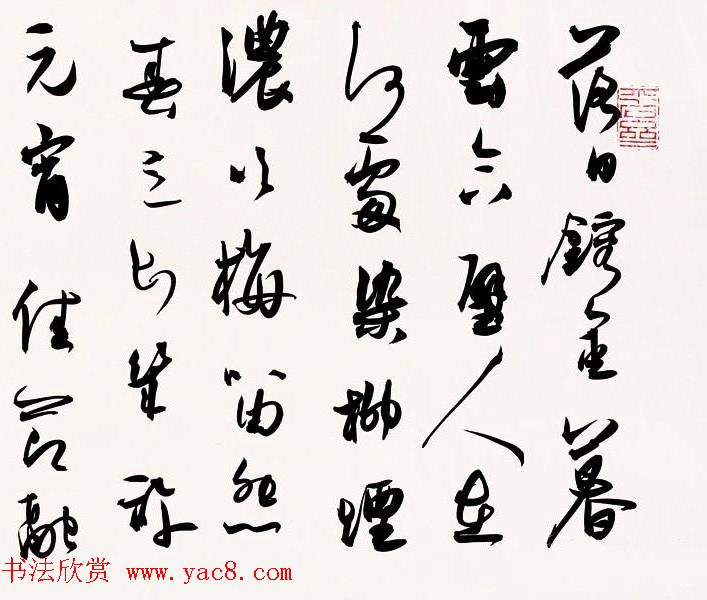 落日鎔金暮
雲合璧人在
何處染柳煙
濃吹梅笛怨
春意知幾許
元宵佳節融
书法欣赏 www.yac8.com